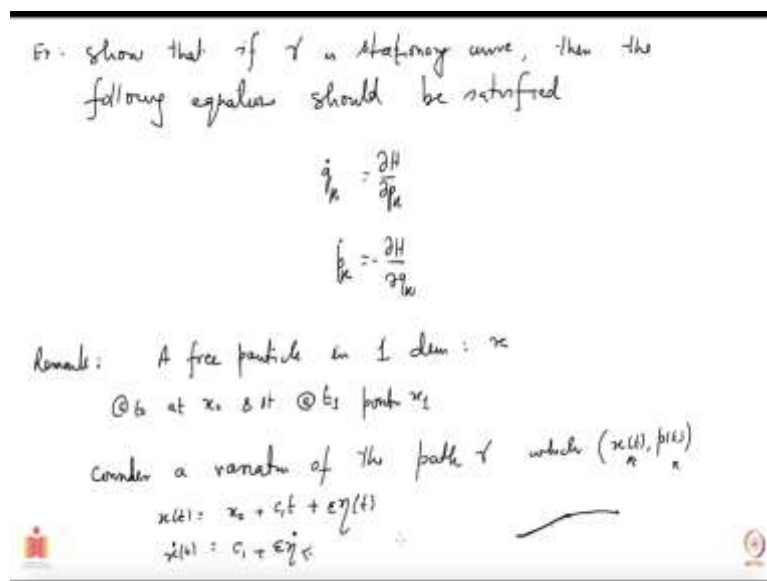 Ex: show that if γ is stationary curve, then the
following equations should be satisfied
q̇ₖ = ∂H/∂pₖ
ṗₖ = -∂H/∂qₖ
Remark: A free particle in 1 dim : x
@ t₀ at x₀ & it @ t₁ point x₁
Consider a variation of the path γ which (x(t), p(t))
x(t) = x₀ + c₁t + εη(t)
ẋ(t) = c₁ + εη̇